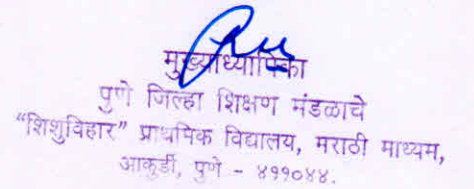 मुख्याध्यापिका
पुणे जिल्हा शिक्षण मंडळाचे
"शिशुविहार" प्राथमिक विद्यालय, मराठी माध्यम,
आकुर्डी, पुणे - ४११०४४.